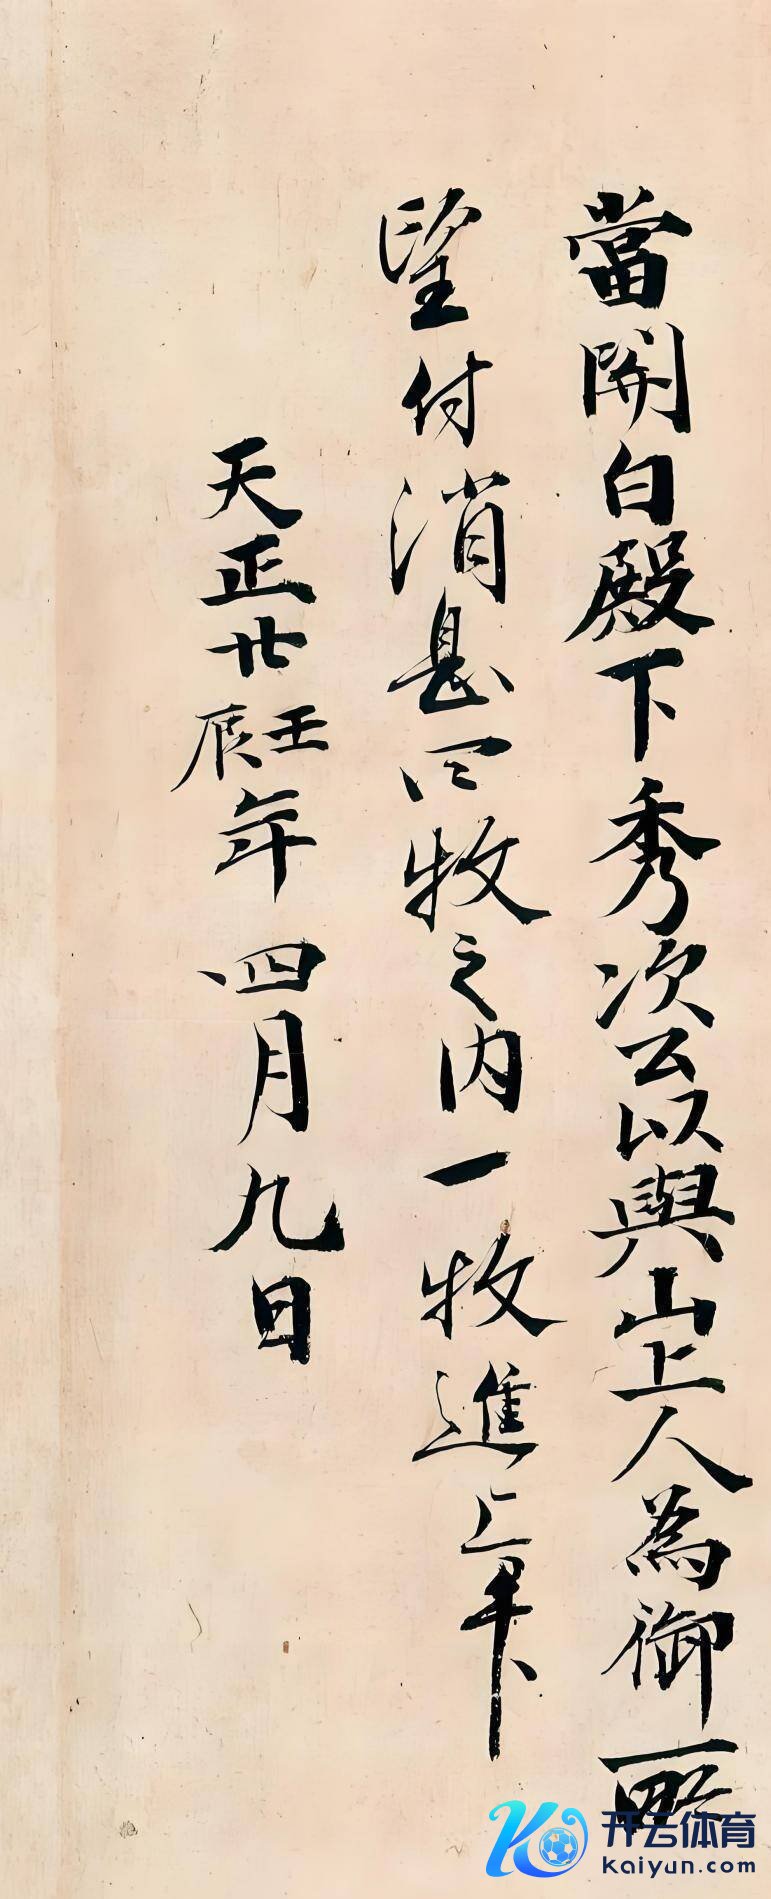 當關白殿下秀次公以與山上人為御所
望付消息四枚之内一枚進上畢
天正廿壬辰年四月九日
开云体育
kaiyun.com